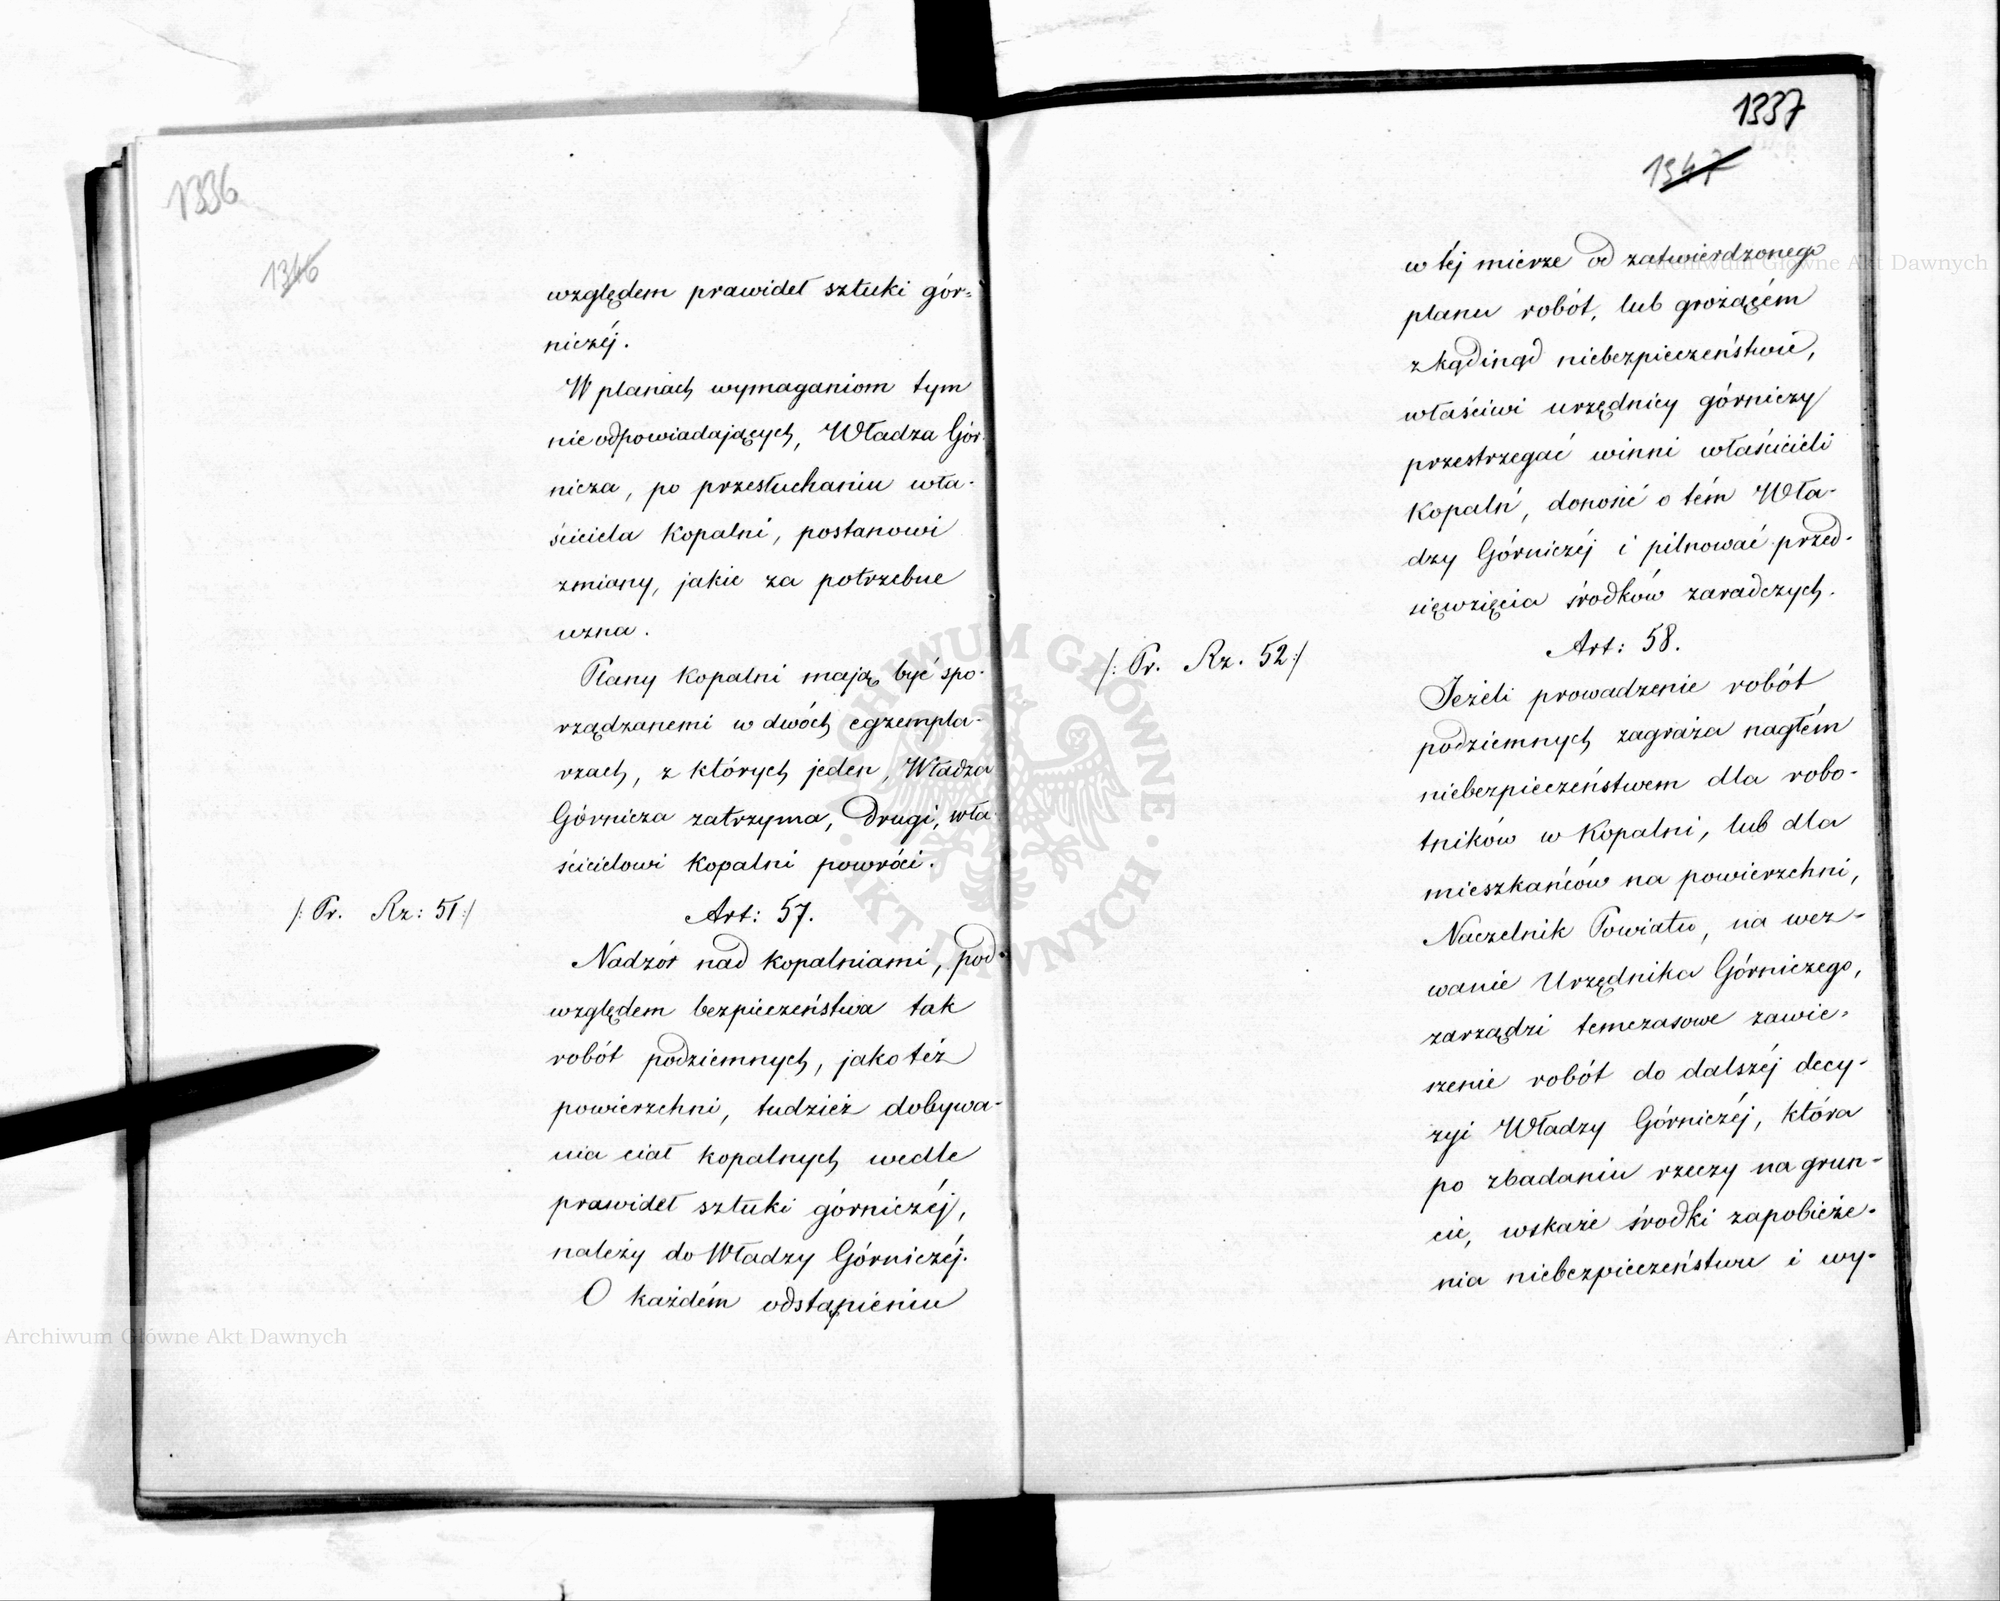 1336
1346
względem prawideł sztuki gór=
niczéj.
W planach wymaganiom tym
nieodpowiadających, Władza Gór-
nicza, po przesłuchaniu wła-
ściciela kopalni, postanowi
zmiany, jakie za potrzebne
uzna.
Plany kopalni mają być spo-
rządzanemi w dwóch egzempla-
rzach, z których jeden, Władza
Górnicza zatrzyma, drugi, wła-
ścicielowi kopalni powróci.
/: Pr. Rz: 51:/
Art: 57.
Nadzór nad kopalniami, pod
względem bezpieczeństwa tak
robót podziemnych, jakotéż
powierzchni, tudzież dobywa-
nia ciał kopalnych wedle
prawideł sztuki górniczéj,
należy do Władzy Górniczéj.
O każdém odstąpieniu
1337
1347
w téj mierze od zatwierdzonego
planu robót, lub grożącém
zkądinąd niebezpieczeństwie,
właściwi urzędnicy górniczy
przestrzegać winni właścicieli
kopalń, donosić o tém Wła-
dzy Górniczéj i pilnować przed-
sięwzięcia środków zaradczych.
/: Pr. Rz. 52:/
Art: 58.
Jeżeli prowadzenie robót
podziemnych zagraża nagłém
niebezpieczeństwem dla robo-
tników w kopalni, lub dla
mieszkańców na powierzchni,
Naczelnik Powiatu, na wez-
wanie Urzędnika Górniczego,
zarządzi temczasowe zawie-
szenie robót do dalszéj decy-
zyi Władzy Górniczéj, która
po zbadaniu rzeczy na grun-
cie, wskaże środki zapobieże-
nia niebezpieczeństwu i wy-
Archiwum Główne Akt Dawnych
Archiwum Główne Akt Dawnych
ARCHIWUM GŁÓWNE
AKT DAWNYCH